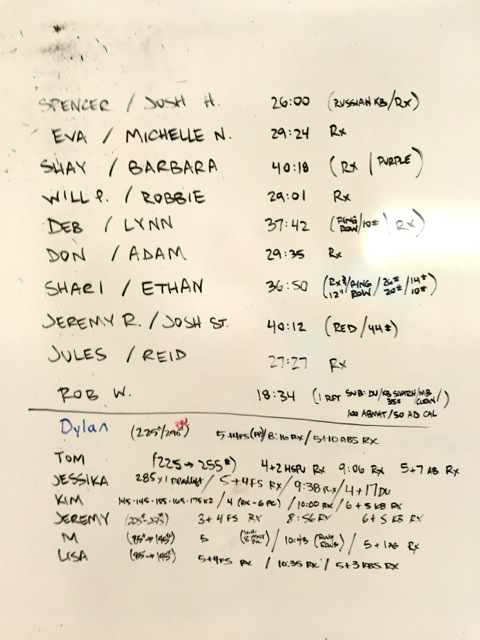 SPENCER / JOSH H. 26:00 (RUSSIAN KB/RX)
EVA / MICHELLE N. 29:24 Rx
SHAY / BARBARA 40:18 (Rx / PURPLE)
WILL P. / ROBBIE 29:01 Rx
DEB / LYNN 37:42 (RING ROW/10# / Rx)
DON / ADAM 29:35 Rx
SHARI / ETHAN 36:50 (Rx 12"/RING ROW /26# 20#/14# 10#)
JEREMY R. / JOSH ST. 40:12 (RED / 44#)
JULES / REID 27:27 Rx
ROB W. 18:34 (1 RFT SUB: DU/KB SNATCH/MB 35# CLEAN/
100 ABMAT/50 AD CAL
Dylan (225#/295#) 5+4FS 8:16 RX / 5+10 ABS RX
TOM (225 → 255#) 4+2 HSPU Rx 9:06 Rx 5+7 AB Rx
JESSIKA 285 x 1 / 5+4FS RX / 9:38 RX / 4+17DU
KIM 145-145-155-165-175x2 / 4 (RX-6 PC) / 10:00 RX / 6+5 KB RX
JEREMY 3+4 FS RX 8:56 RX 6+5 KB RX
M (95#→145#) 5 / 10:43 (RING ROWS) / 5+1 AB Rx
LISA (95→145#) 5+4FS RX / 10:35 RX / 5+3 KBS RX